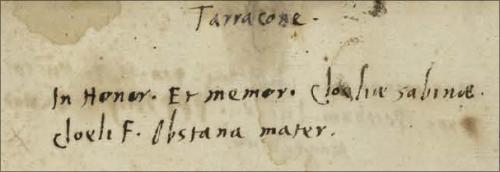 Tarracone.
In Honor. Et memor. Cloeliæ sabinæ.
Cloeli F. Obstana mater.